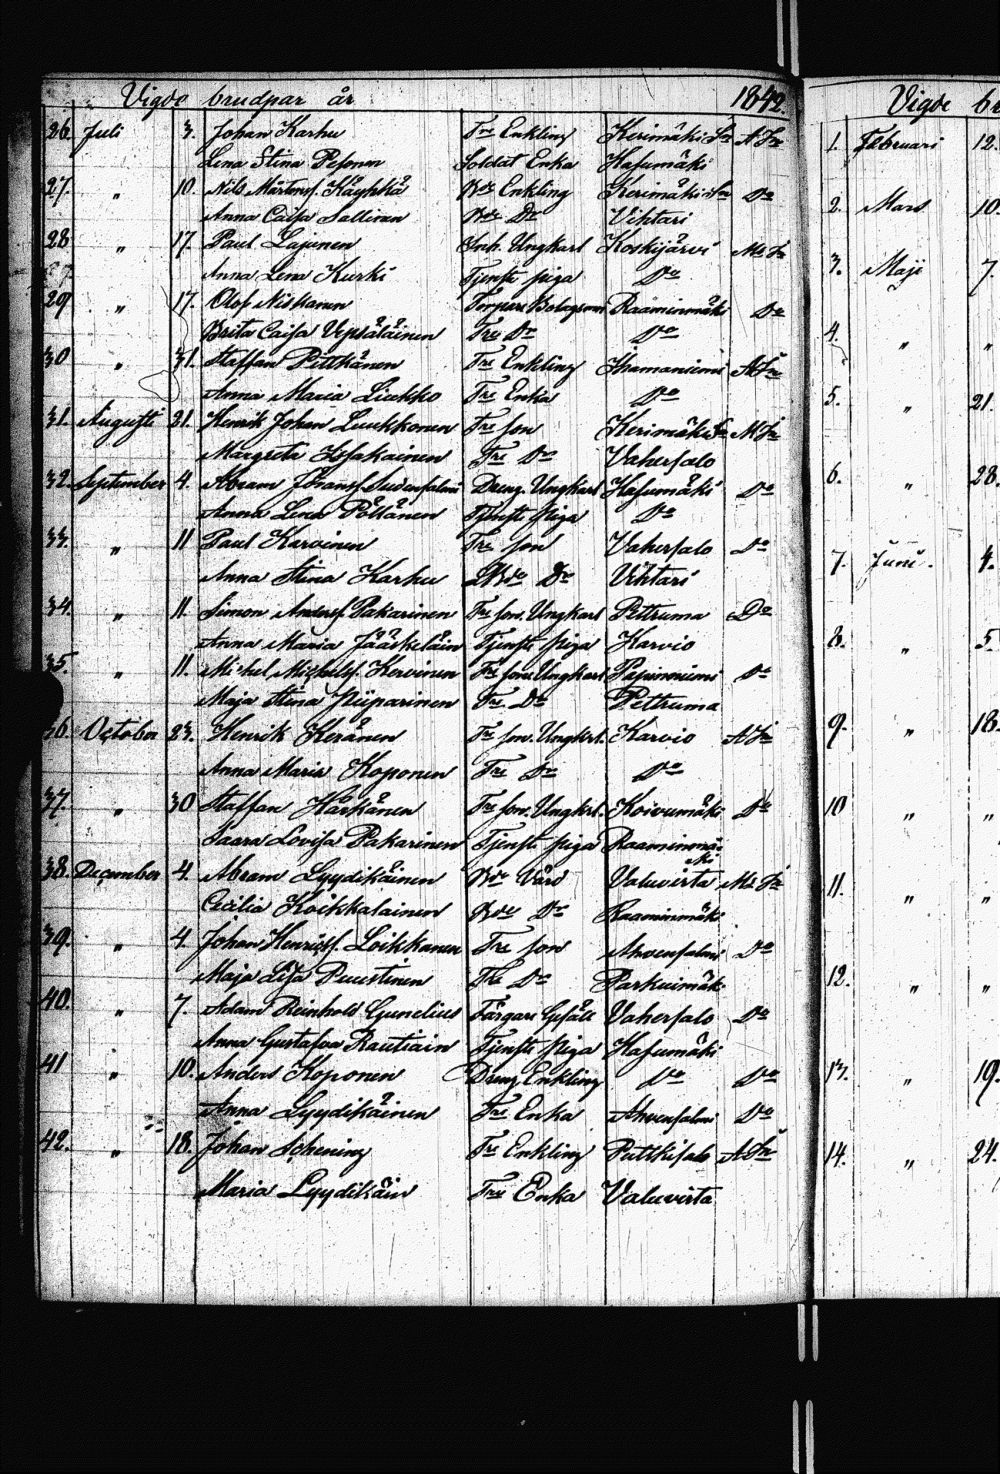 Vigde brudpar år 1842.
26. Juli 3. Johan Karhu Tre Enkling Kerimäki Sn A Fr
Lena Stina Pesonen Soldat Enka Hasumäki
27. " 10. Nils Mårtensf. Käyhkä Bde Enkling Kerimäki Sn Do
Anna Caisa Sallinen Bde Do Vihtari
28 " 17. Paul Lajunen Inh. Ungkarl Koskijärvi M: Fr
Anna Lena Kurki Tjenste piga Do
29 " 17. Olof Niskanen Torpare Raaminmäki Do
Brita Caisa Vepsäläinen Tre Do Do
30 " 31. Staffan Pittkänen Tre Enkling Ihamaniemi A Fr
Anna Maria Liukko Tre Enka Do
31. Augusti 21. Henrik Johan Luukkonen Tre son Kerimäki Sn M Fr
Margreta Issakainen Tre Do Vahersalo
32. September 4. Abram Dreng. Ungkarl Hasumäki Do
Anna Lena Pöllänen Tjenste Piga Do
33. " 11 Paul Karvinen Tre son Vahersalo Do
Anna Stina Karhu Bde Do Vihtari
34. " 11. Simon Andersf. Pakarinen Tre son. Ungkarl Petruma Do
Anna Maria Jääskeläin Tjenste Piga Karvio
35. " 11. Mickel Michelsf. Kervinen Tre son Ungkarl Do
Maja Stina Piiparinen Tre Do Pettruma
36. October 23. Henrik Keränen Tre son. Ungkrl. Karvio A Fr
Anna Maria Koponen Tre Do Do
37. " 30 Staffan Härkänen Tre son. Ungkrl. Koivumäki Do
Saara Lovisa Pakarinen Tjenste piga Raaminmä-
ki
38. December 4. Abram Lyydikäinen Bde Valuvirta M: Fr
Cecilia Koikkalainen Bde Do Raaminmäki
39. " 4. Johan Henricsf. Loikkanen Tre son Ahvensalmi Do
Maja Lisa Puustinen Tre Do Parkuimäki
40. " 7. Adam Reinhold Gunelius Färgare Gesäll Vahersalo Do
Anna Gustafva Rautiain Tjenste Piga Hasumäki
41 " 10. Anders Koponen Dreng Enkling Do Do
Anna Lyydikäinen Tre Enka Ahvensalmi Do
42. " 18. Johan Schening Tre Enkling Puttkisalo A Fr
Maria Lyydikäin Tre Enka Valuvirta
Vigde br
1. Februari 12.
2. Mars 10.
3. Maji 7.
4. " "
5. " 21.
6. " 28.
7. Juni. 4.
8. " 5
9. " 18.
10 " "
11. " "
12. " "
13. " 19.
14. " 24.